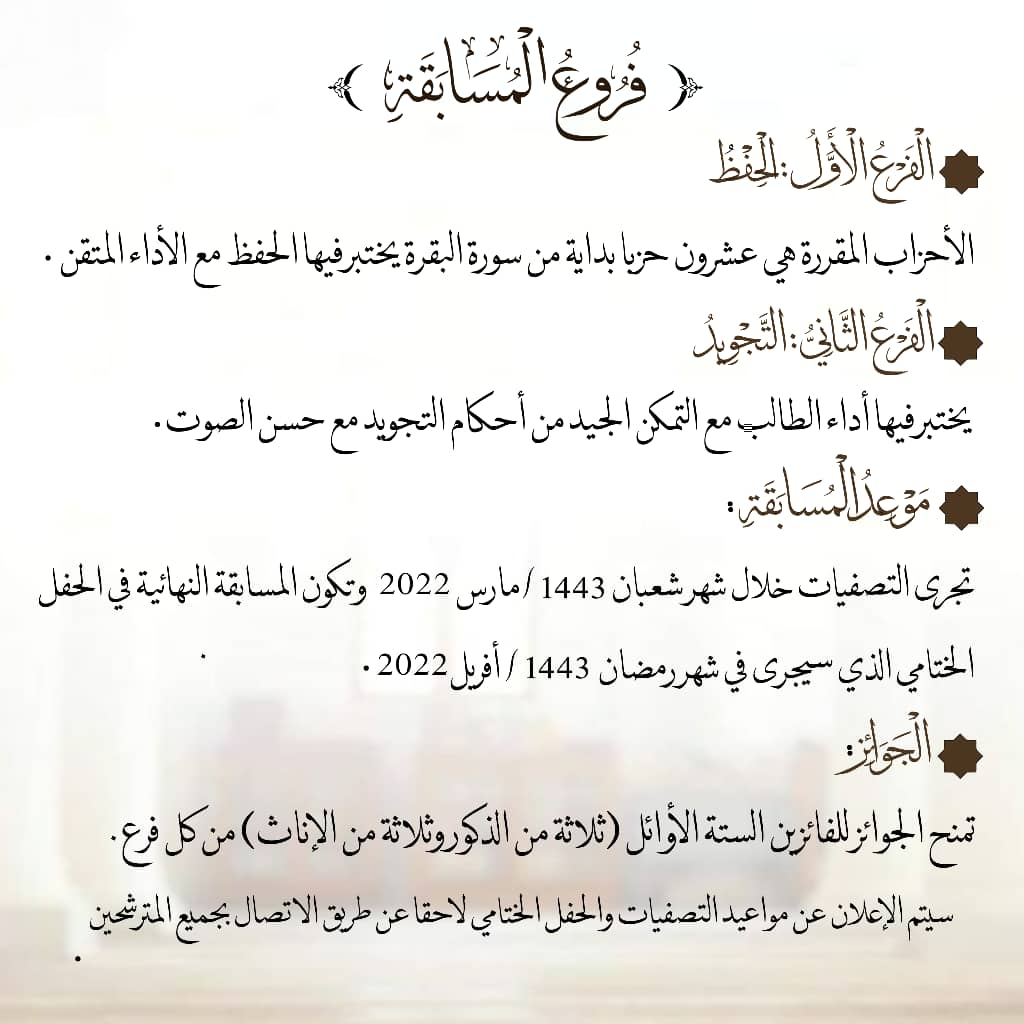 فُرُوعُ الْمُسَابَقَةِ
الْفَرْعُ الْأَوَّلُ : الْحِفْظُ
الأحزاب المقررة هي عشرون حزبا بداية من سورة البقرة يختبر فيها الحفظ مع الأداء المتقن .
الْفَرْعُ الثَّانِيُّ : التَّجْوِيدُ
يختبر فيها أداء الطالب مع التمكن الجيد من أحكام التجويد مع حسن الصوت .
مَوْعِدُ الْمُسَابَقَةِ :
تجرى التصفيات خلال شهر شعبان 1443 / مارس 2022 وتكون المسابقة النهائية في الحفل
الختامي الذي سيجرى في شهر رمضان 1443 / أفريل 2022 .
الْجَوَائِز :
تمنح الجوائز للفائزين الستة الأوائل (ثلاثة من الذكور وثلاثة من الإناث) من كل فرع .
سيتم الإعلان عن مواعيد التصفيات والحفل الختامي لاحقا عن طريق الاتصال بجميع المترشحين .